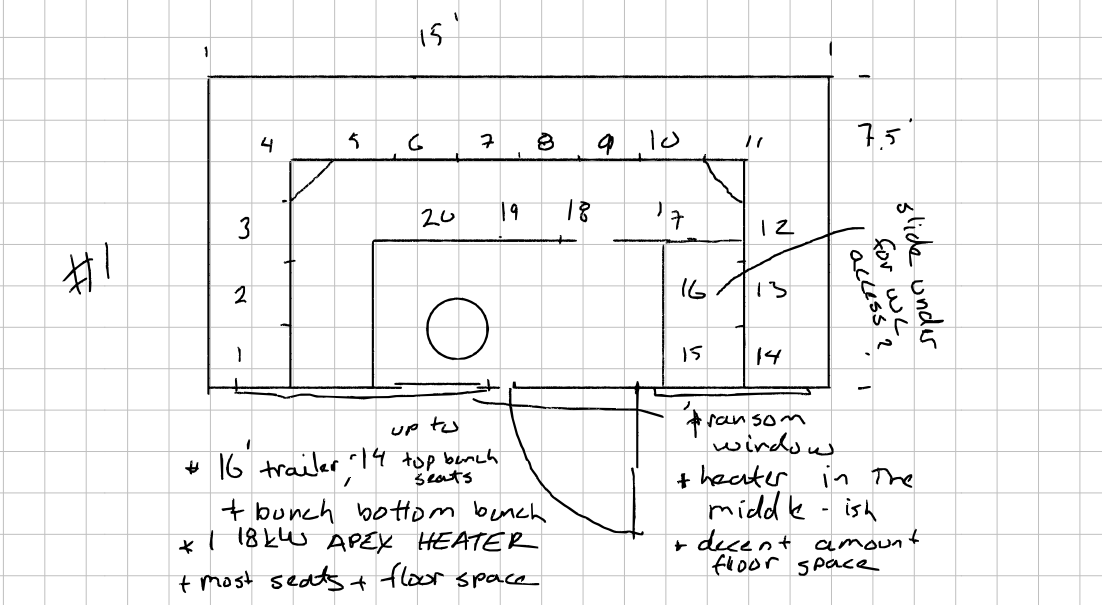 15'
7.5'
4 5 6 7 8 9 10 11
3 20 19 18 17 12
#1
2 16 13
1 15 14
slide under
for WC
access?
up to
* 16' trailer, 14 top bench
seats
+ bunch bottom bench
* 1 18kW APEX HEATER
+ most seats + floor space
transom
window
+ heater in the
middle-ish
+ decent amount
floor space